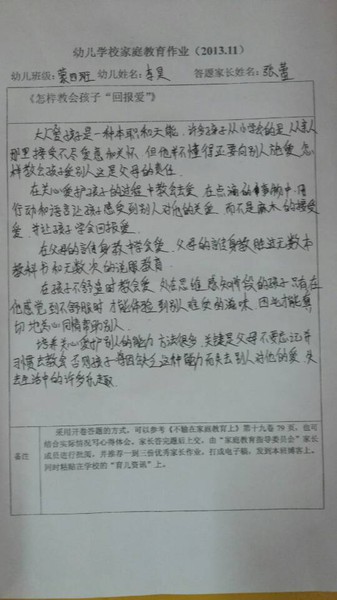 幼儿学校家庭教育作业（2013.11）
幼儿班级：蒙四班 幼儿姓名：李昊 答题家长姓名：张萱
《怎样教会孩子“回报爱”》
大人爱孩子是一种本职和天能，许多孩子从小学会的是从亲人
那里接受不尽爱意和关怀 但他并不懂得还要向别人施爱，怎
样教会孩子爱别人这是父母的责任。
在关心爱护孩子的过程中教会爱，在点滴的事物中，用
行动和语言让孩子感受到别人对他的关爱 而不是麻木的接受
爱 并让孩子学会回报爱
在父母的言传身教中学会爱，父母的言传身教胜过无数本
教科书和无数次的说服教育
在孩子不舒适时教会爱 处在思维感知阶段的孩子只有在
他感觉到不舒服时 才能体验到别人难受的滋味 因此才能真
切地关心同情帮助别人。
培养关心爱护别人的能力 方法很多 关键是父母不要忘记并
习惯去教会 否则孩子会因缺乏这种能力而失去别人对他的爱 失
去生活中的许多乐趣
备注
采用开卷答题的方式，可以参考《不输在家庭教育上》第十九卷 79 页，也可
结合实际情况写心得体会。家长答完题后上交，由“家庭教育指导委员会”家长
成员进行批阅，并推荐一到三份优秀家长作业，打成电子稿，发到本班博客上。
同时粘贴在学校的“育儿资讯”上。